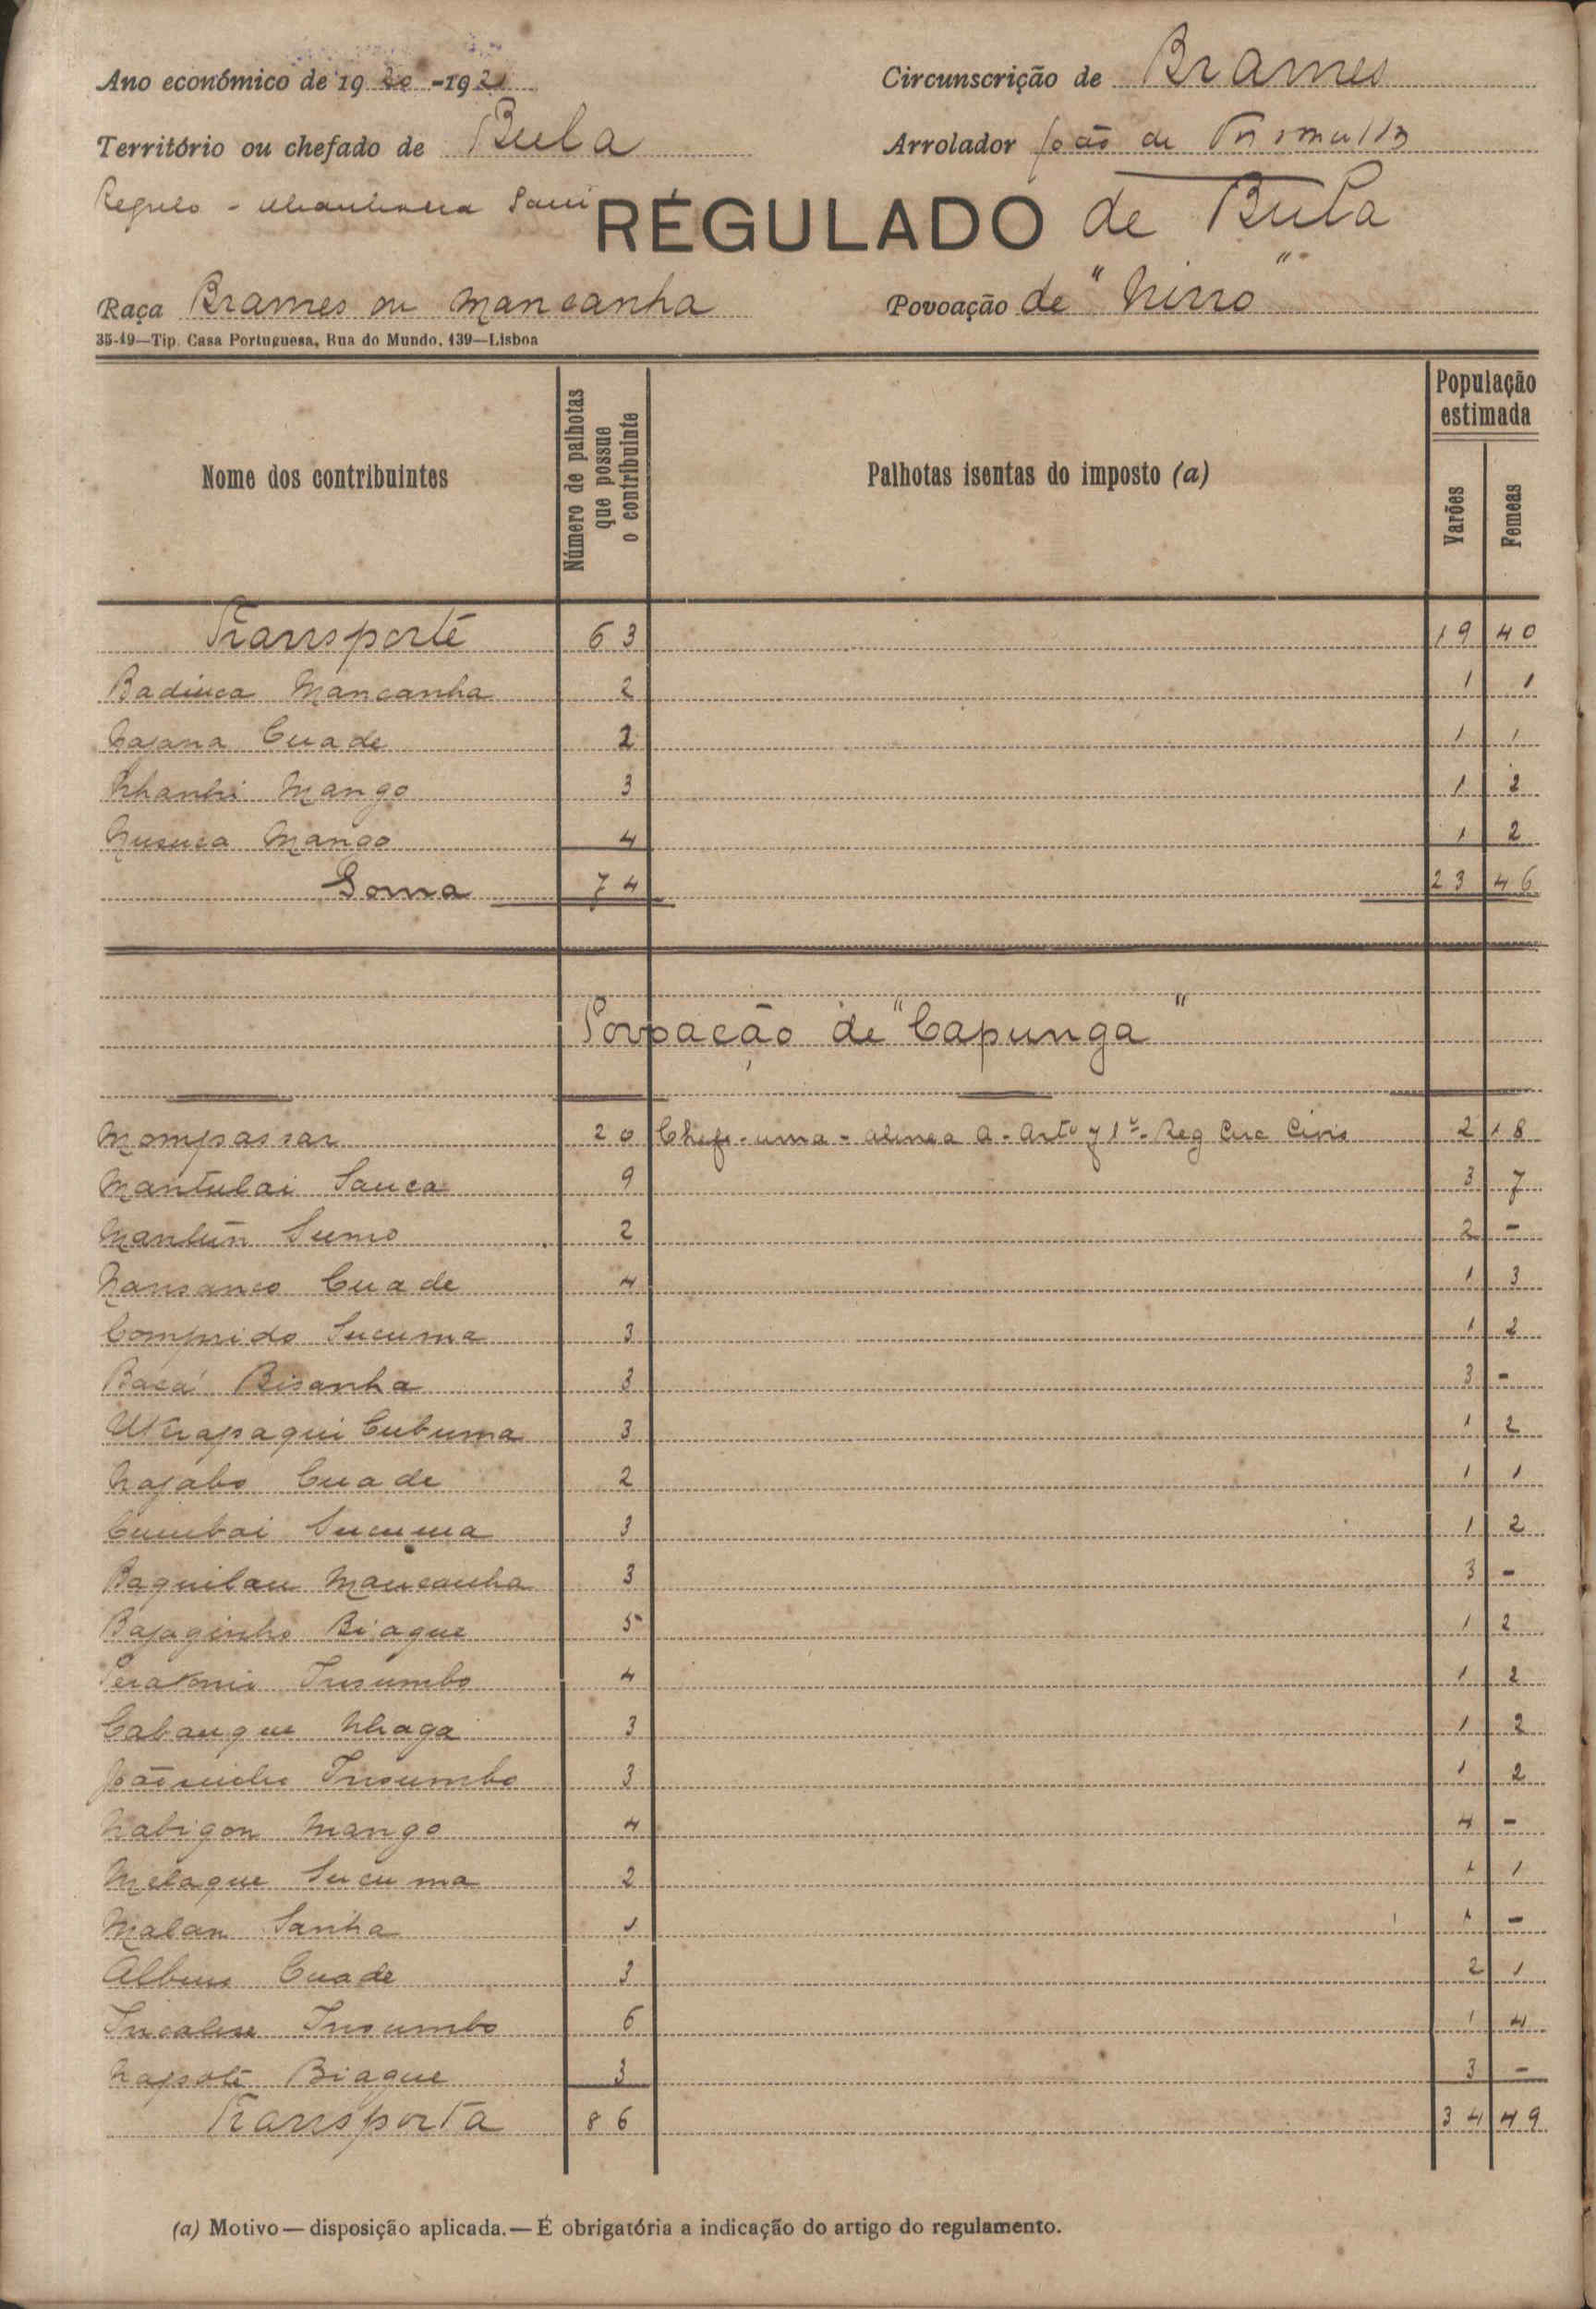 Ano económico de 1920-1921
Circunscrição de Brames
Território ou chefado de Bula
Arrolador João de
Regulo -
RÉGULADO de Bula
Raça Brames ou Mancanha
Povoação de "Ninno"
35-19—Tip. Casa Portuguesa, Rua do Mundo, 139—Lisboa
Nome dos contribuintes
Número de palhotas que possue o contribuinte
Palhotas isentas do imposto (a)
População estimada
Varões
Femeas
Transporte 63 19 40
Badiuca Mancanha 2 1 1
Cajana Cuade 2 1 1
Nhanhi Mango 3 1 2
Nusuca Mango 4 1 2
Soma 74 23 46
Povoação de "Capunga"
Mompassar 20 Chefe - uma - alinea a - Artº 71º - Reg Circ Civis 2 18
Mantulai Sauca 9 3 7
Mantün Sumo 2 2 -
Nansanco Cuade 4 1 3
Comprido Sucuma 3 1 2
Bacá Bisanha 3 3 -
Cubuma 3 1 2
Najabo Cuade 2 1 1
Cumbai Sucuma 3 1 2
Baquilau Mancanha 3 3 -
Bajaginho Biaque 5 1 2
Insumbo 4 1 2
Cabanque Nhaga 3 1 2
Insumbo 3 1 2
Nabigon Mango 4 4 -
Melaque Sucuma 2 1 1
Malan Sanha 1 1 -
Albino Cuade 3 2 1
Insumbo 6 1 4
Napoté Biaque 3 3 -
Transporta 86 34 49
(a) Motivo — disposição aplicada. — É obrigatória a indicação do artigo do regulamento.